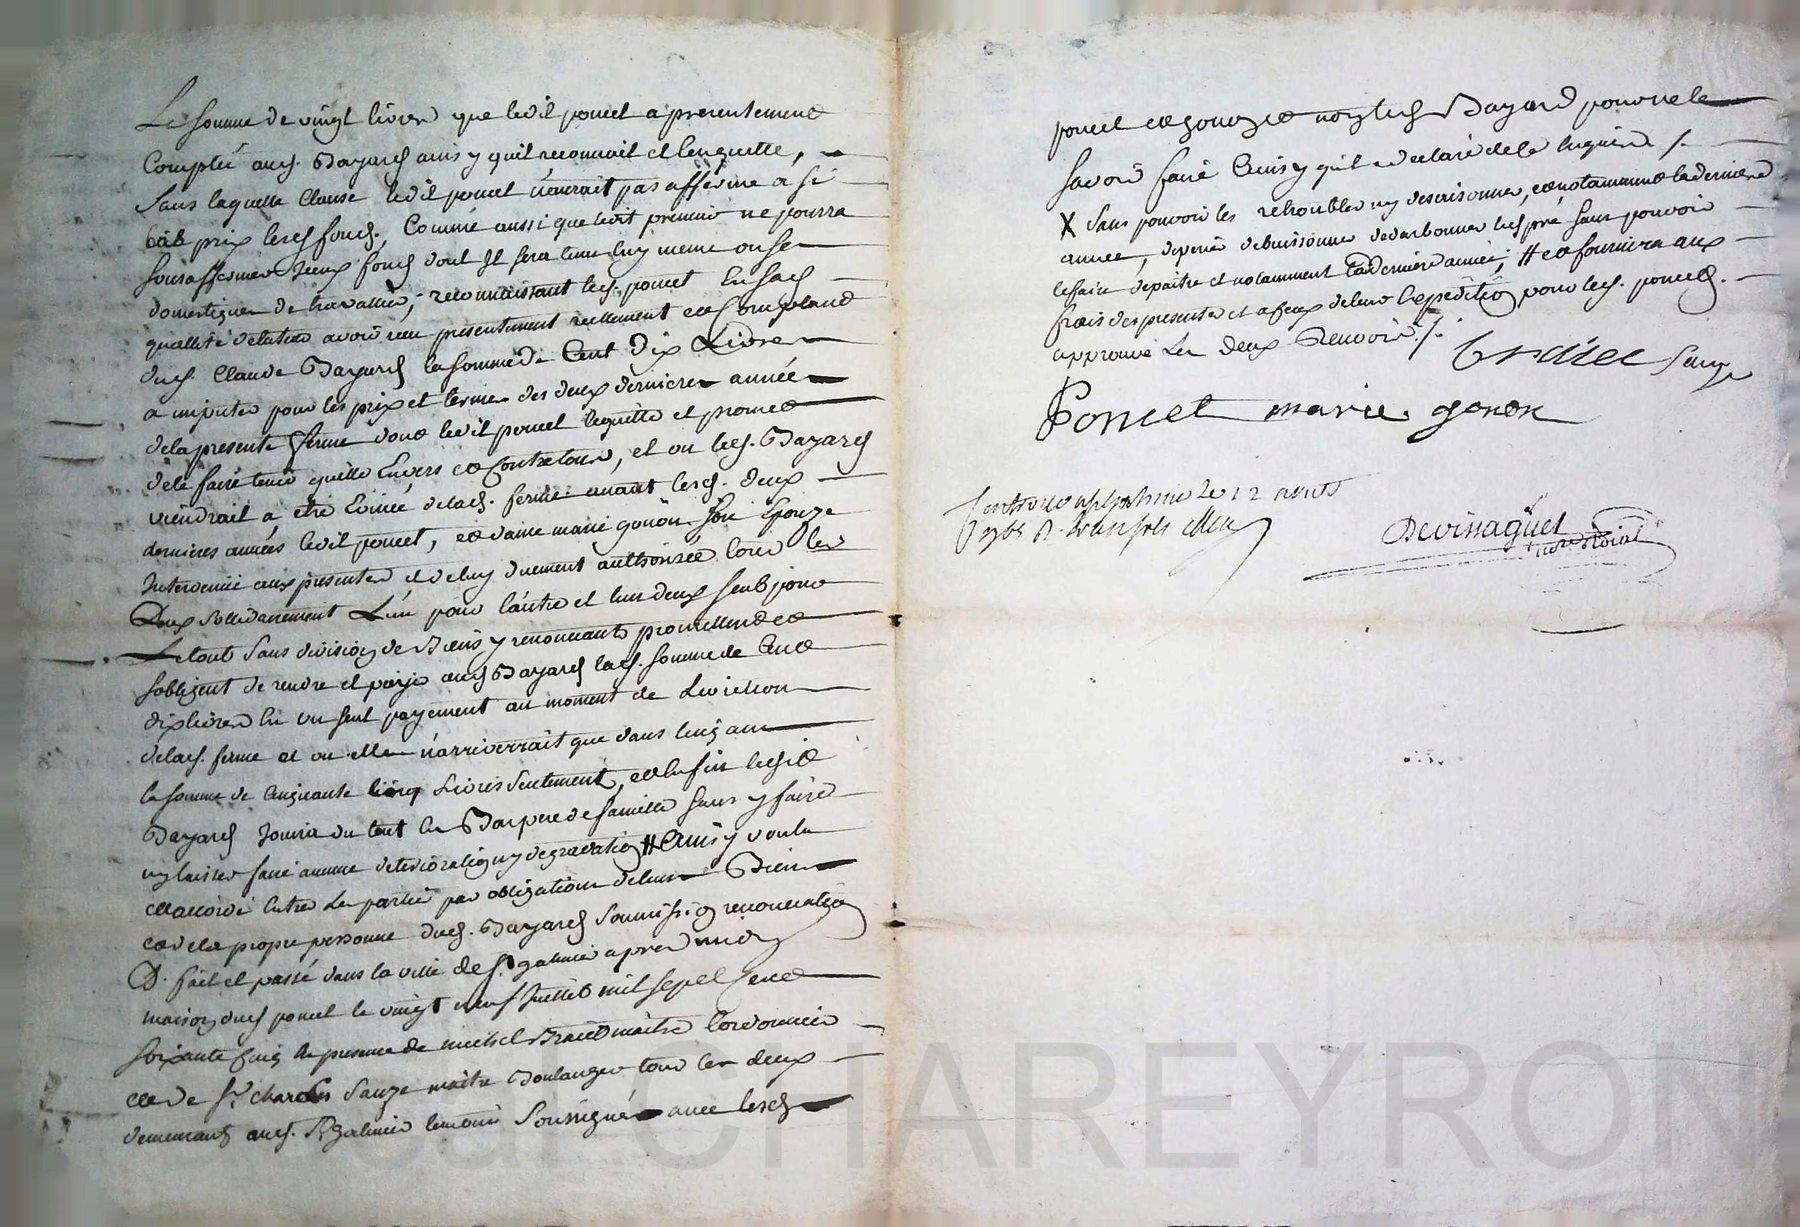 La somme de vingt livres que ledit poncet a presentement
Compté aud. Bayard ainsy quil reconnoit et len quitte,
Sans laquelle Clause ledit poncet n'auroit pas affermé a si
bas prix lesd. fonds. Comme aussi que ledit premier ne pourra
sousaffermer iceux fonds dont Il sera tenu luy meme ou ses
domestiques de travailler; reconnaissant led. poncet En sad.
quallité de tuteur avoir reçu presentement reellement et Comptant
dud. Claude Bayard la somme de Cent Dix Livres
a imputer pour les prix et termes des deux dernieres années
de la presente ferme dont ledit poncet le quitte et promet
de le faire tenir quitte Envers et Contre tous, et ou led. Bayard
viendrait a être Evincé de lad. ferme avant lesd. deux
dernieres années ledit poncet, et dame marie gonon son Epouze
Intervenue aux presentes et de luy duement authorisée tous les
Deux sollidairement L'un pour l'autre et l'un deux seul pour
Le tout sans division de Biens y renonceants promettent et
sobligent de rendre et payer aud. Bayard lad. somme de Cent
dix livres En un seul payement au moment de Leviction
de lad. ferme et ou elle n'arriverrait que dans cinq ans
la somme de Cinquante Cinq Livres seulement, et enfin ledit
Bayard Jouira du tout En Bon pere de famille sans y faire
ny laisser faire aucune deterioration ny degradation # Ainsy voulu
et accordé Entre Les parties par obligation de leurs Biens
et de la propre personne dud. Bayard soumission renonciation
D. fait et passé dans la ville de St galmier apres midy
maison dud poncet le vingt neuf Juillet mil sept Cent
soixante Cinq En presence de michel maître Cordonnier
et de Sr. Charles Sauze maître Boulanger tous les deux
demeurant aud. St galmier temoins Soussignés avec lesd.
poncet et gonon et non led. Bayard pour ne le
savoir faire Ainsy qu'il a declaré de ce Enquis /.
X Sans pouvoir les retroubler ny dessaisonner, et notamment la derniere
année, dépinés debuissonner led. pré sans pouvoir
le faire depaitre et notamment la derniere année; # et fournira aux
frais des presentes et a ceux de leur Expedition pour led. poncet.
approuvé Les deux Renvois /.
Sauze
Poncet marie gonon
Controllé a St galmier le 12 aoust
1765 R.
Devinaguet
no.re Roial
CHAREYRON